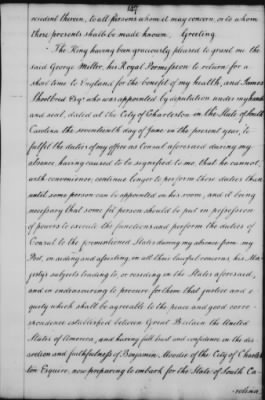 147
resident therein, to all persons whom it may concern, or to whom
these presents shall be made known, Greeting
The King having been graciously pleased to grant me the
said George Miller, his Royal Permission to return for a
short time to England for the benefit of my health, and James
Shoolbred Esqr. who was appointed by deputation under my hand
and seal, dated at the City of Charleston in the State of South
Carolina the seventeenth day of June in the present year, to
fulfil the duties of my office as Consul aforesaid during my
absence having caused to be signified to me, that he cannot,
with convenience, continue longer to perform these duties than
until some person can be appointed in his room, and it being
necessary that some fit person should be put in possession
of powers to execute the functions and perform the duties of
Consul to the forementioned States during my absence from my
Post, in aiding and assisting, in all their lawful concerns, his Ma-
jesty's subjects trading to or residing in the States aforesaid,
and in endeavouring to procure for them that justice and e-
quity which shall be agreeable to the peace and good corre-
spondence established between Great Britain the United
States of America, and having full trust and confidence in the dis-
cretion and faithfulness of Benjamin Moodie of the City of Charles-
ton Esquire, now preparing to embark for the State of South Ca-
-rolina